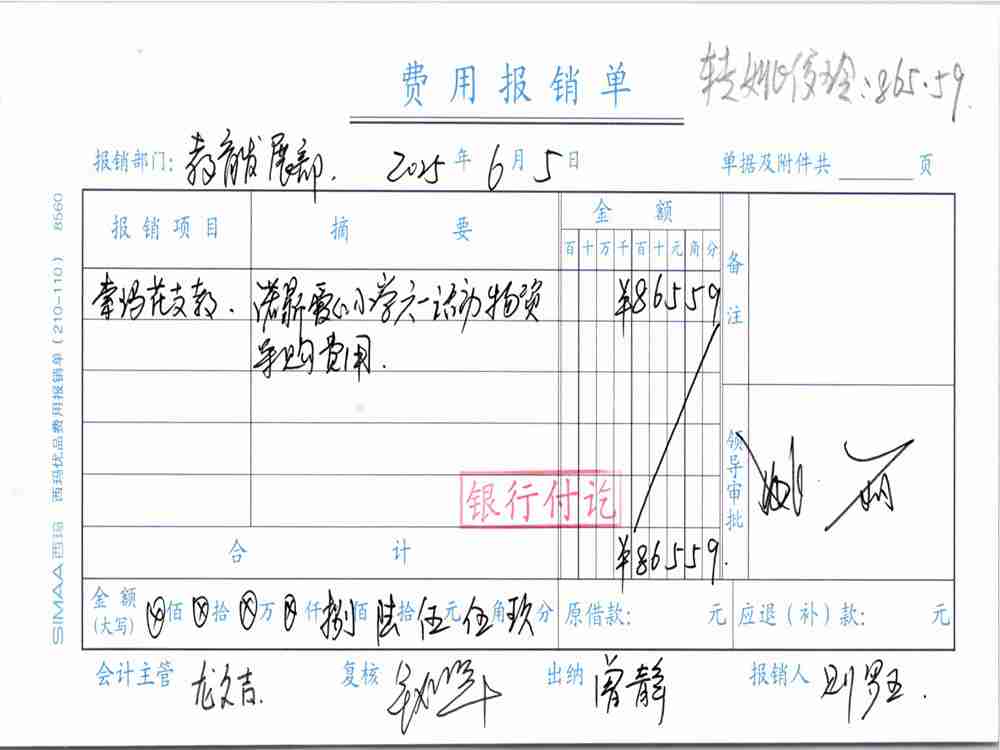 转姚俊玲:865.59.
费用报销单
报销部门: 教育发展部. 2025年6月5日 单据及附件共 页
报销项目 摘要 金额 备注
百十万千百十元角分
索玛花支教. 诺斯爱心小学六一活动物资 ¥86559
采购费用.
领导审批
银行付讫
合计 ¥86559.
金额(大写) ⊗佰⊗拾⊗万⊗仟捌佰陆拾伍元伍角玖分 原借款: 元 应退(补)款: 元
会计主管 龙文吉. 复核 出纳 曾静 报销人
SIMAA西玛 西玛优品费用报销单(210-110) 8560